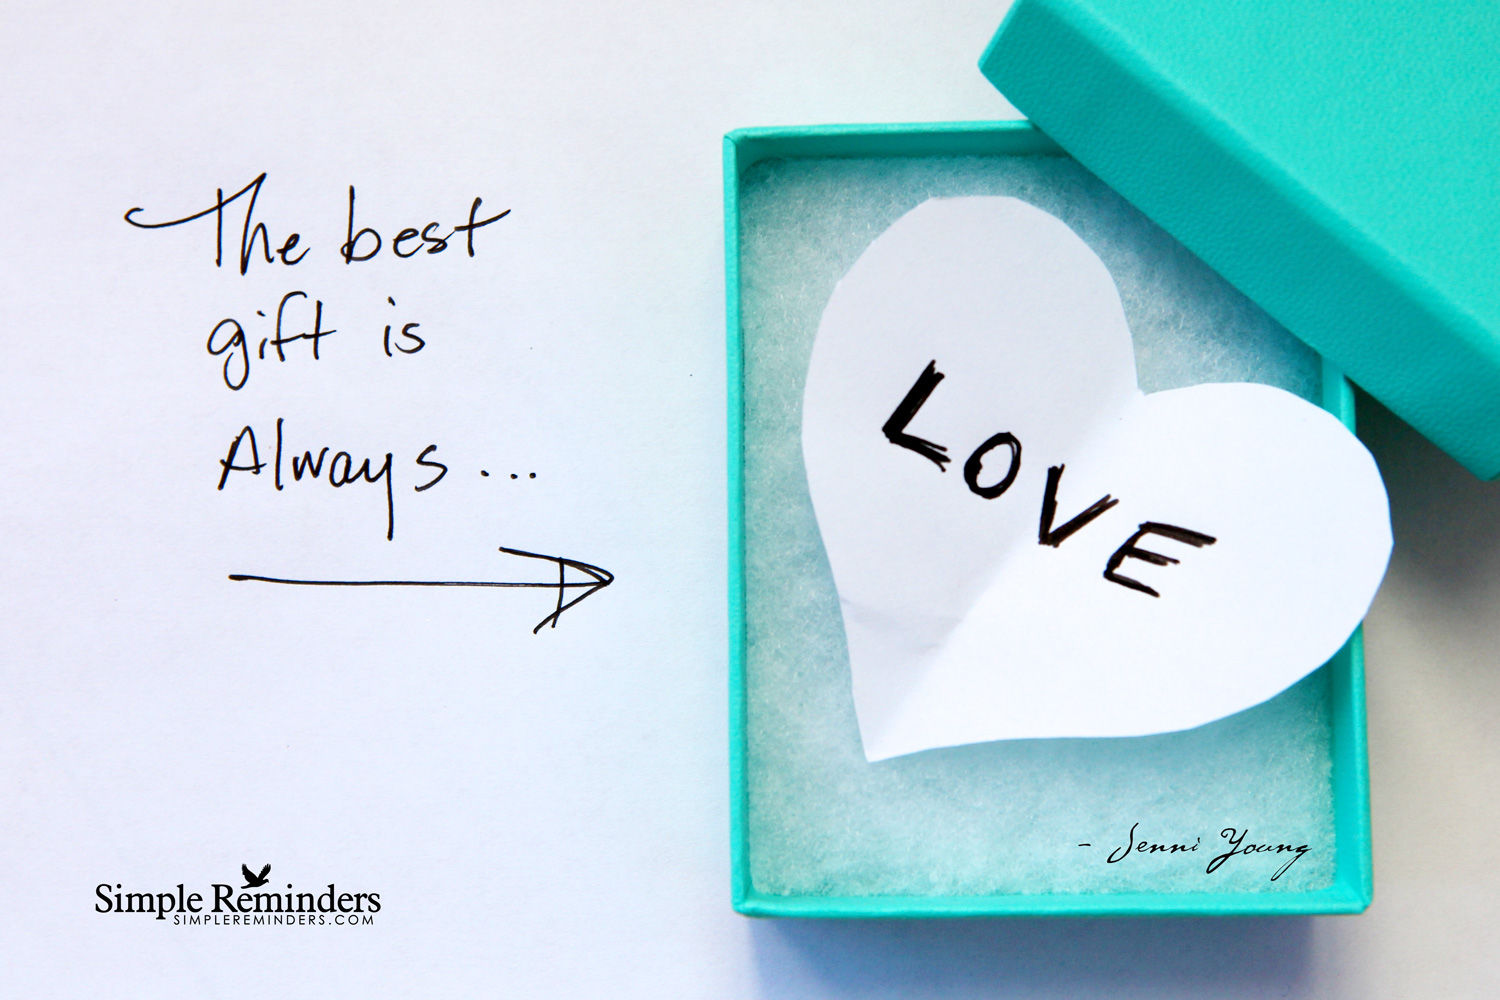 The best
gift is
Always...
LOVE
- Jenni Young
Simple Reminders
SIMPLEREMINDERS.COM